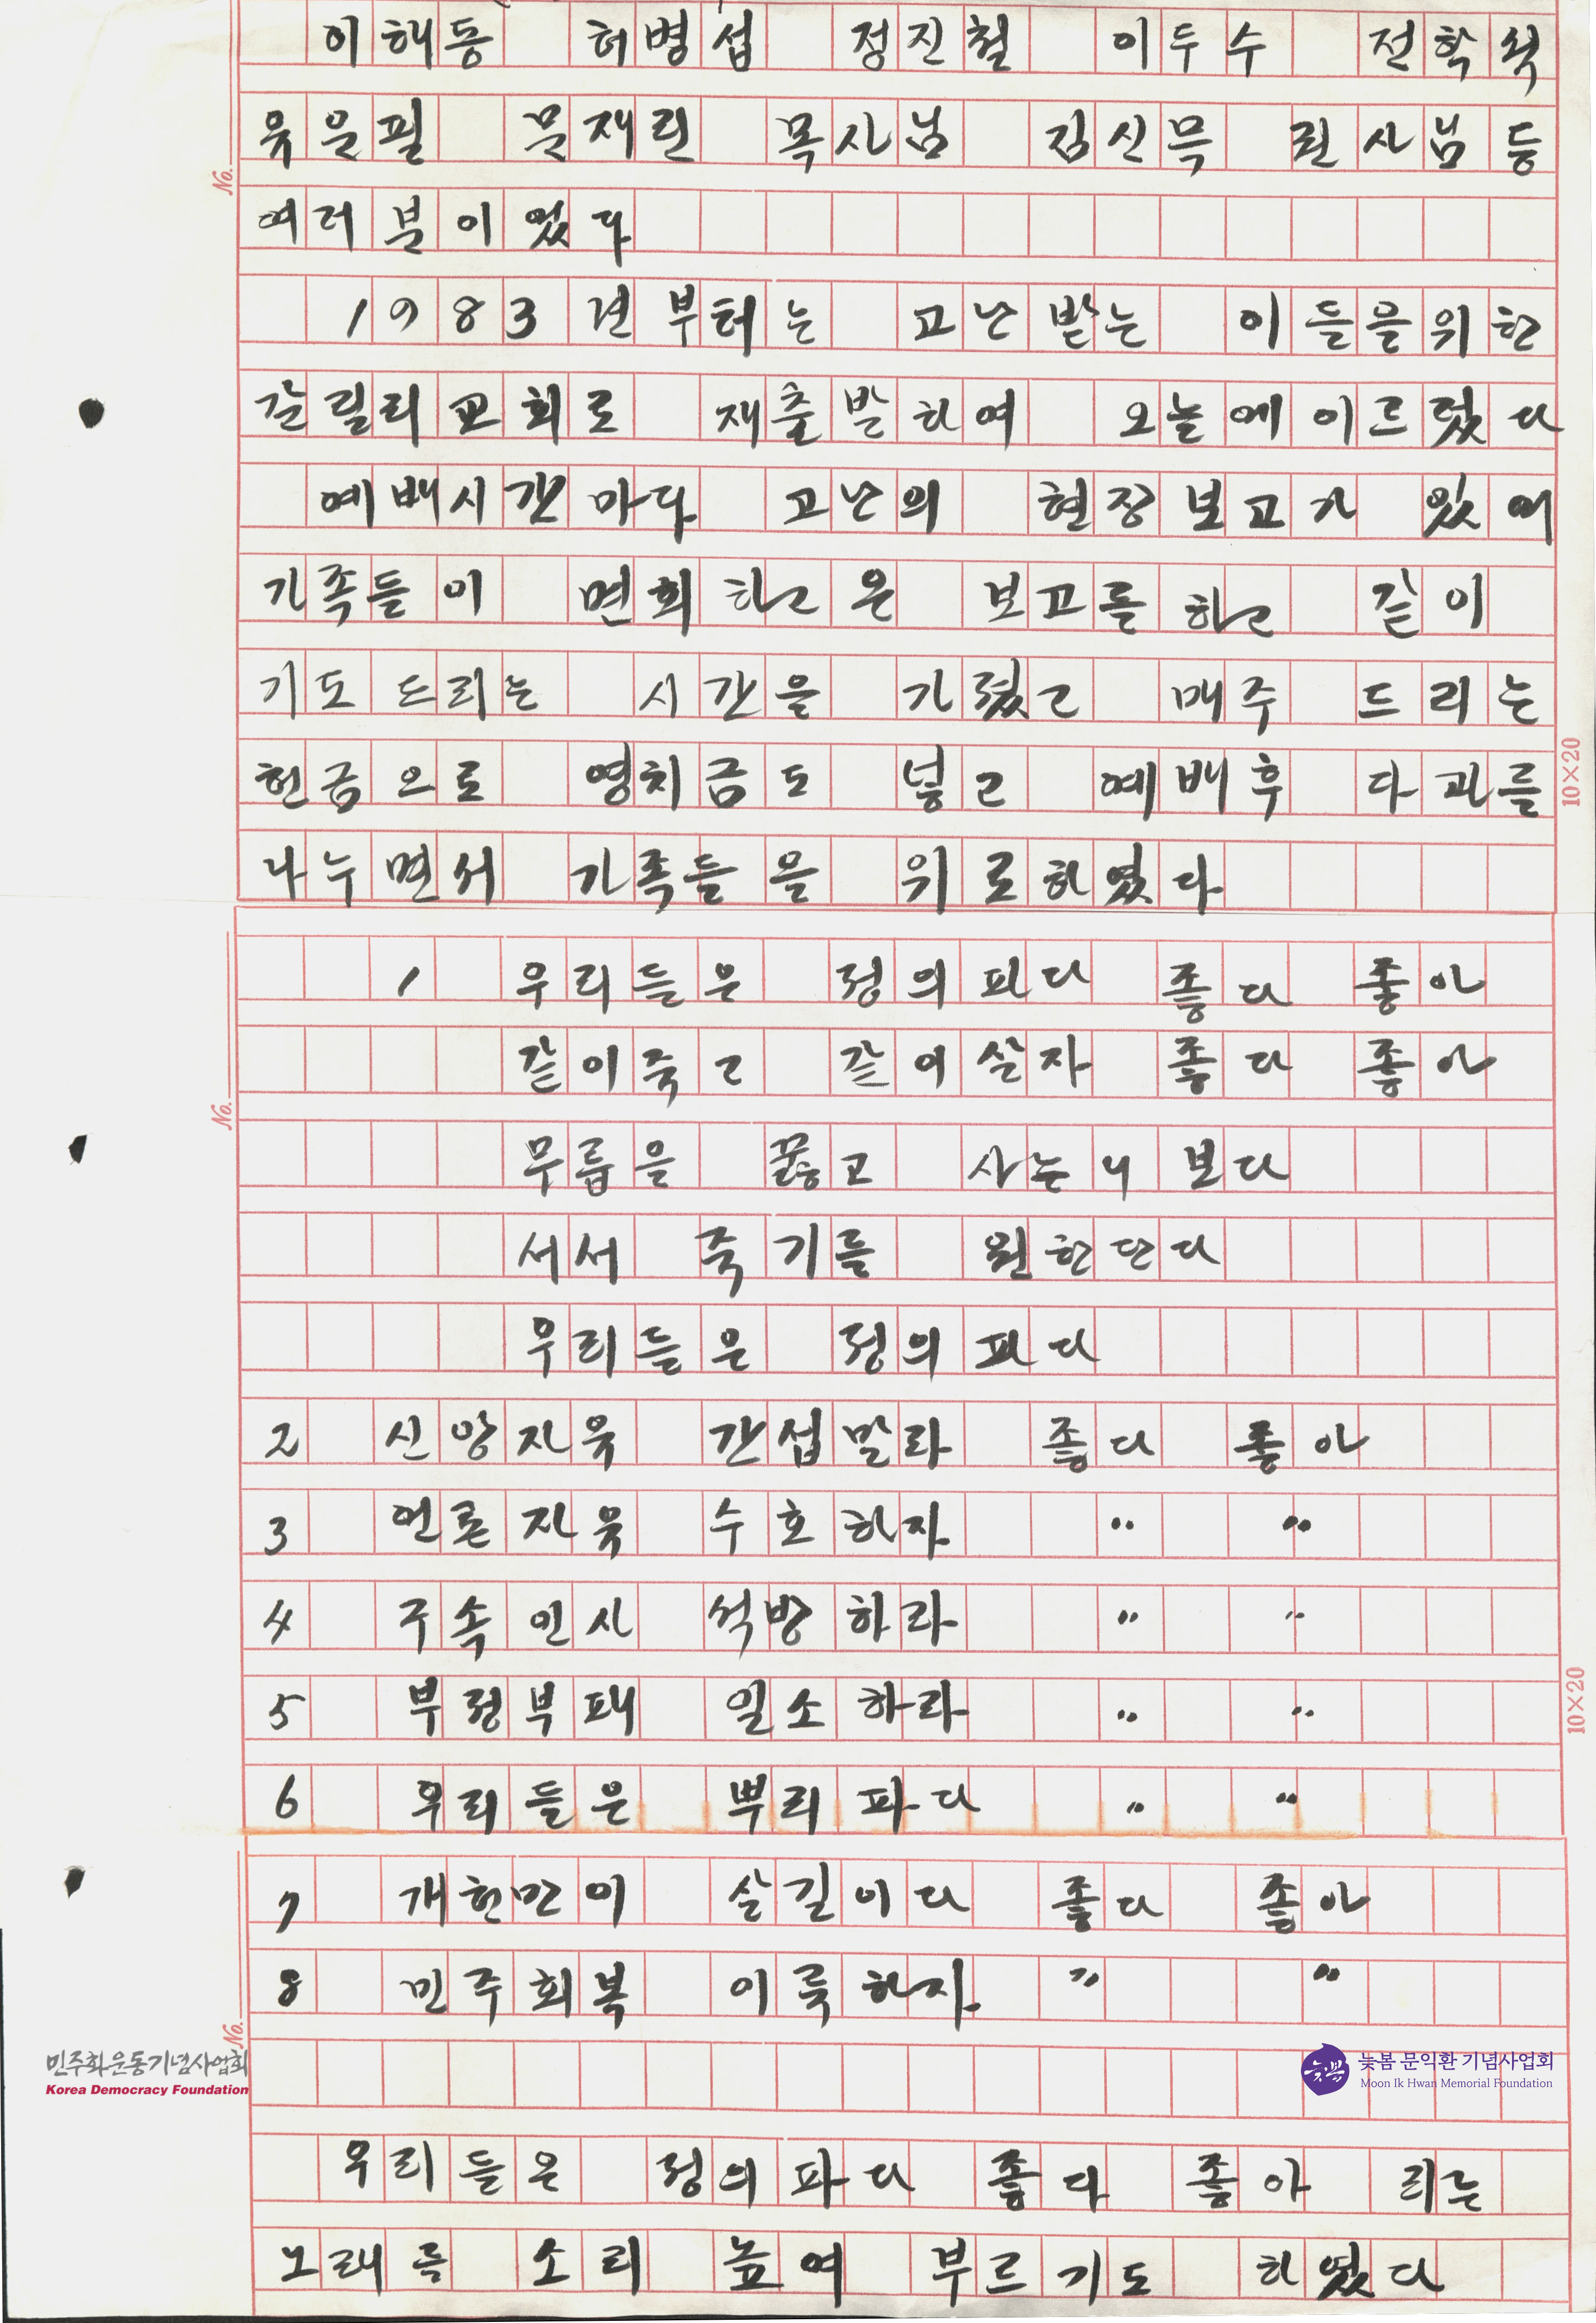 이해동 허병섭 정진철 이두수 전학석
유운필 문재린 목사님 김신묵 권사님 등
여러분이었다
1983년부터는 고난 받는 이들을위한
갈릴리교회로 재출발하여 오늘에이르렀다
예배시간마다 고난의 현장보고가 있어
가족들이 면회하고온 보고를하고 같이
기도드리는 시간을 가졌고 매주 드리는
헌금으로 영치금도 넣고 예배후 다과를
나누면서 가족들을 위로하였다
1 우리들은 정의파다 좋다 좋아
같이죽고 같이살자 좋다 좋아
무릎을 꿇고 사느니보다
서서 죽기를 원한단다
우리들은 정의파다
2 신앙자유 간섭말라 좋다 좋아
3 언론자유 수호하자 〃 〃
4 구속인사 석방하라 〃 〃
5 부정부패 일소하라 〃 〃
6 우리들은 뿌리파다 〃 〃
7 개헌만이 살길이다 좋다 좋아
8 민주회복 이룩하자 〃 〃
우리들은 정의파다 좋다 좋아 라는
노래를 소리 높여 부르기도 하였다
No.
No.
No.
10×20
10×20
민주화운동기념사업회
Korea Democracy Foundation
늦봄
늦봄 문익환 기념사업회
Moon Ik Hwan Memorial Foundation